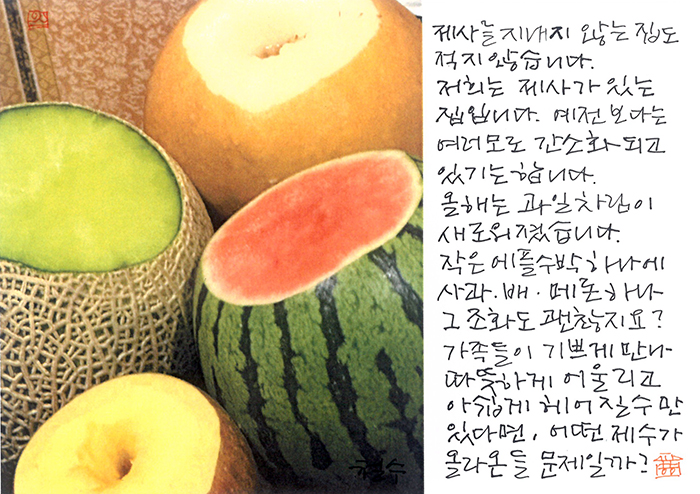 제사를 지내지 않는 집도
적지 않습니다.
저희는 제사가 있는
집입니다. 예전보다는
여러모로 간소화 되고
있기는 합니다.
올해는 과일차림이
새로워졌습니다.
작은 애플수박 하나에
사과·배·메론 하나
그 조화도 괜찮지요?
가족들이 기쁘게 만나
따뜻하게 어울리고
아쉽게 헤어질수만
있다면, 어떤 제수가
올라온들 문제일까?
철수